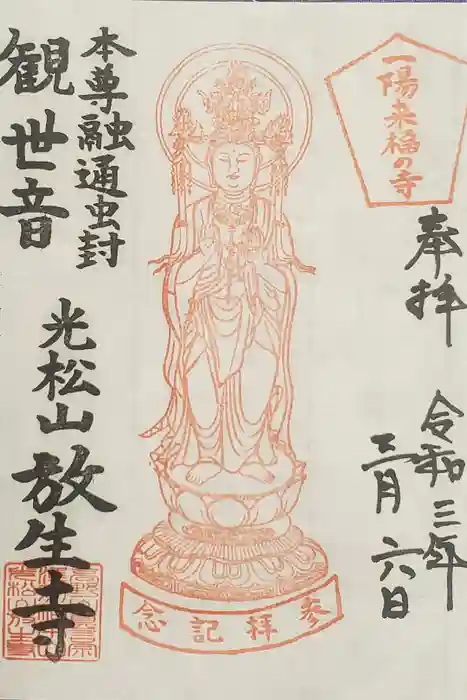 一陽来福の寺
奉拝
令和三年
三月六日
参拝記念
本尊融通虫封
観世音
光松山
放生寺